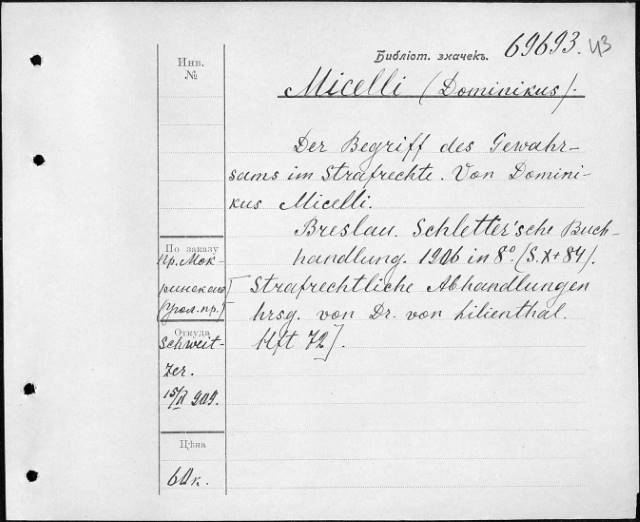 Библіот. значекъ. 69693. 43
Инв.
№
Micelli (Dominikus).
Der Begriff des Gewahr-
sams im Strafrechte. Von Domini-
kus Micelli.
Breslau. Schletter'sche Buch-
handlung. 1906 in 8º. (S. X + 84).
[Strafrechtliche Abhandlungen
hrsg. von Dr. von Lilienthal.
Hft 72].
По заказу
Пр. Мок-
ринскаго
(Угол. пр.)
Откуда
Schweit-
zer.
909.
Цѣна
60 к.